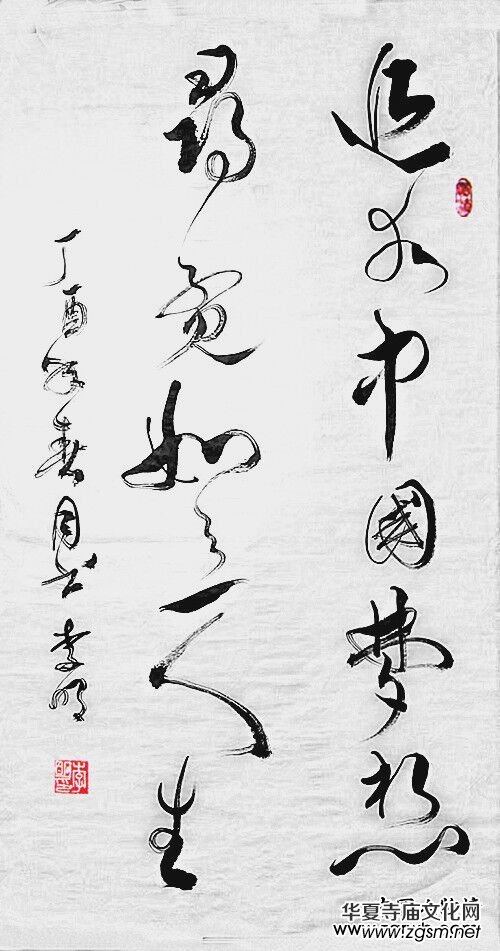 追求中國夢想
尋覓如意人生
丁酉年春月书 李明
华夏寺庙文化网
www.zgsm.net